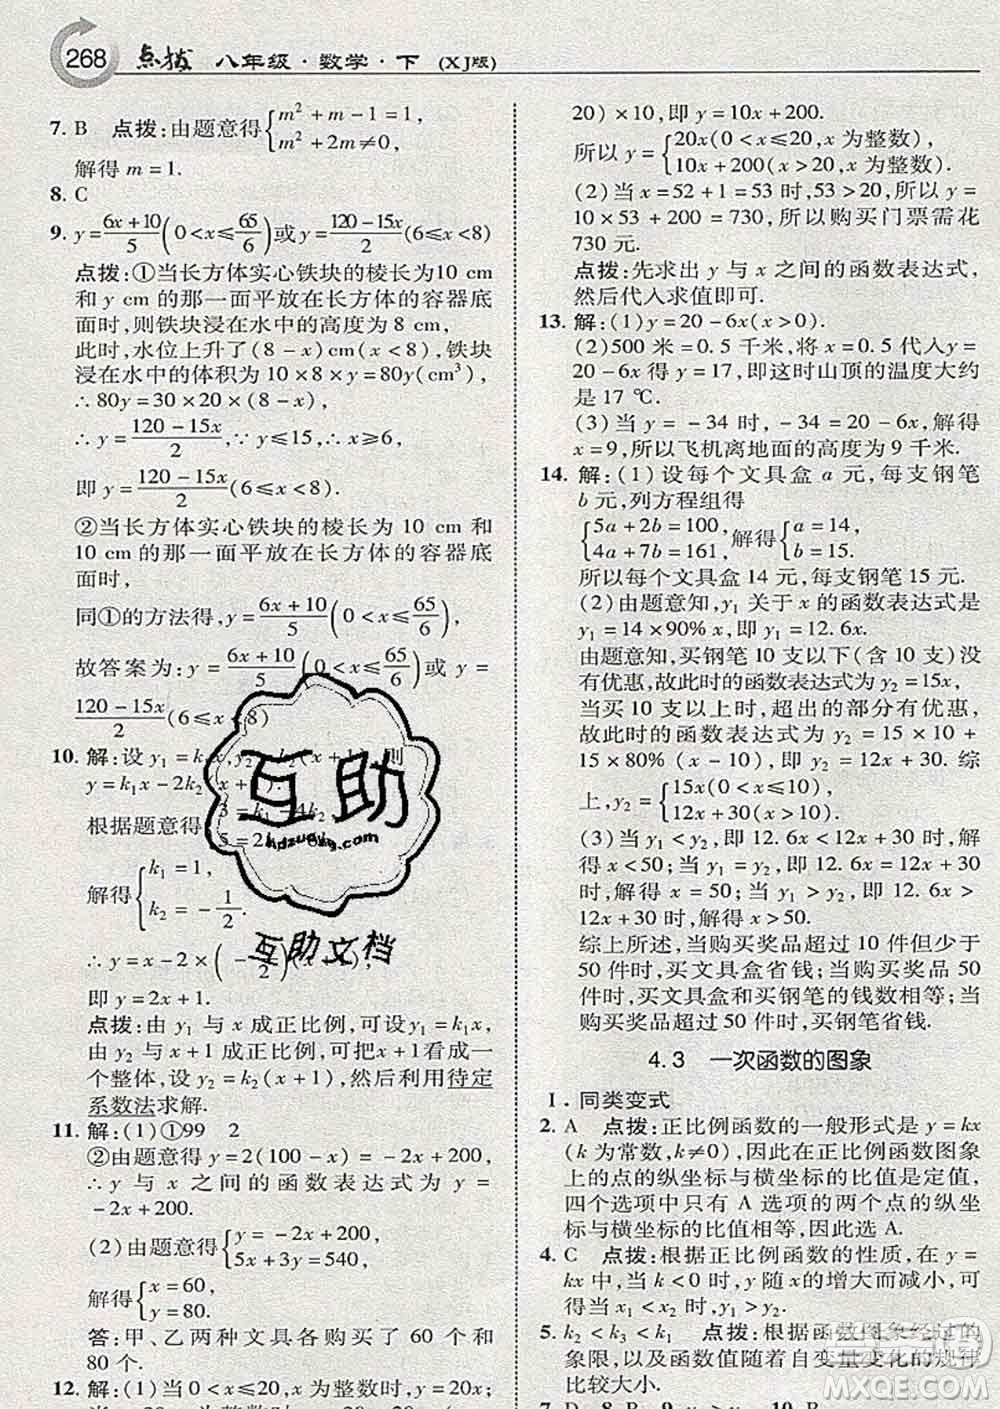 268 点拨 八年级·数学·下 (XJ版)
7. B 点拨:由题意得{m²+m-1=1,
m²+2m≠0,
解得 m=1.
8. C
9. y=(6x+10)/5(0<x≤65/6)或y=(120-15x)/2(6≤x<8)
点拨:①当长方体实心铁块的棱长为10 cm
和 y cm 的那一面平放在长方体的容器底
面时,则铁块浸在水中的高度为 8 cm,
此时,水位上升了(8-x)cm(x<8),铁块
浸在水中的体积为 10×8×y=80y(cm³),
∴80y=30×20×(8-x),
∴y=(120-15x)/2,∵y≤15,∴x≥6,
即y=(120-15x)/2(6≤x<8).
②当长方体实心铁块的棱长为 10 cm 和
10 cm 的那一面平放在长方体的容器底
面时,
同①的方法得,y=(6x+10)/5(0<x≤65/6),
故答案为:y=(6x+10)/5(0<x≤65/6)或 y=
(120-15x)/2(6≤x<8)
10. 解:设 y₁=k₁x,y₂=k₂(x+1),则
y=k₁x-2k₂(x+
根据题意得
3= -4k₂
5=2
解得{k₁=1,
k₂=-1/2
∴y=x-2×(-1/2)(x
即 y=2x+1.
点拨:由 y₁ 与 x 成正比例,可设y₁=k₁x,
由 y₂ 与 x+1 成正比例,可将 x+1 看成一
个整体,设 y₂=k₂(x+1),然后利用待定
系数法求解.
11. 解:(1)①99 2
②由题意得 y=2(100-x)=-2x+200,
∴y 与 x 之间的函数表达式为 y=
-2x+200.
(2)由题意得{y=-2x+200,
5x+3y=540,
解得{x=60,
y=80.
答:甲、乙两种文具各购买了 60 个和
80 个.
12. 解:(1)当 0<x≤20,x 为整数时,y=20x;
当x>20,x为整数时,y=20×20+(x-
20)×10,即 y=10x+200.
所以 y={20x(0<x≤20,x 为整数),
10x+200(x>20,x 为整数).
(2)当 x=52+1=53 时,583>20,∴y=
10×53+200=730,所以购买门票需花
730 元.
点拨:先求出 y 与 x 之间的函数表达式,
然后代入求值即可.
13. 解:(1)y=20-6x(x>0).
(2)500 米=0.5 千米,将 x=0.5 代入y=
20-6x,得 y=17,即这时山顶的温度大约
是 17 ℃.
(3)当 y=-34 时,-34=20-6x,解得
x=9,所以飞机离地面的高度为 9 千米.
14. 解:(1)设每个文具盒 a 元,每支钢笔
b 元,列方程组得
{5a+2b=100,
4a+7b=161,解得{a=14,
b=15.
所以每个文具盒 14 元,每支钢笔 15 元.
(2)由题意知,y₁ 关于 x 的函数表达式是
y₁=14×90% x=12.6x.
由题意知,买钢笔 10 支以下(含 10 支)没
有优惠,故此时的函数表达式为 y₂=15x,
当买 10 支以上时,超出的部分有优惠,
故此时的函数表达式为 y₂=15×10+
15×80% (x-10),即 y₂=12x+30. 综
上,y₂={15x(x≤10),
12x+30(x>10).
(3)当 y₁<y₂,即 12.6x<12x+30 时,解
得 x<50;当 y₁=y₂,即 12.6x=12x+30
时,解得 x=50;当 y₁>y₂,即 12.6x>
12x+30时,解得 x>50.
综上所述,当购买奖品超过 10 件但少于
50 件时,买文具盒省钱;当购买奖品 50
件时,买文具盒和买钢笔的钱数相等;当
购买奖品超过 50 件时,买钢笔省钱.
4.3 一次函数的图象
1. 同类变式
2. A 点拨:正比例函数的一般形式是 y=kx
(k 为常数,k≠0),因此在正比例函数图象
上的点的纵坐标与横坐标的比值是定值,
四个选项中只有 A 选项的两个点的纵坐
标与横坐标的比值相等,因此选A.
4. C 点拨:根据正比例函数的性质,在 y=
kx 中,当 k<0 时,y 随x的增大而减小,可
得当 x₁<x₂ 时,y₁>y₂.
5. k₂<k₃<k₁ 点拨:根据函数图象经过的
象限,以及函数值随着自变量变化的规律
比较大小.
互助
hdzuoye.com
互助文档
MXQE.COM